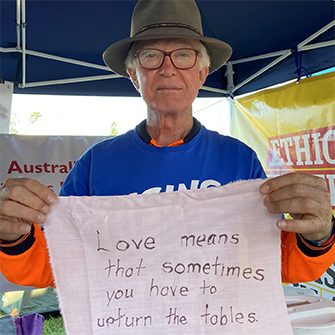 Austral
ETHIC
Love means
that sometimes
you have to
upturn the tables.